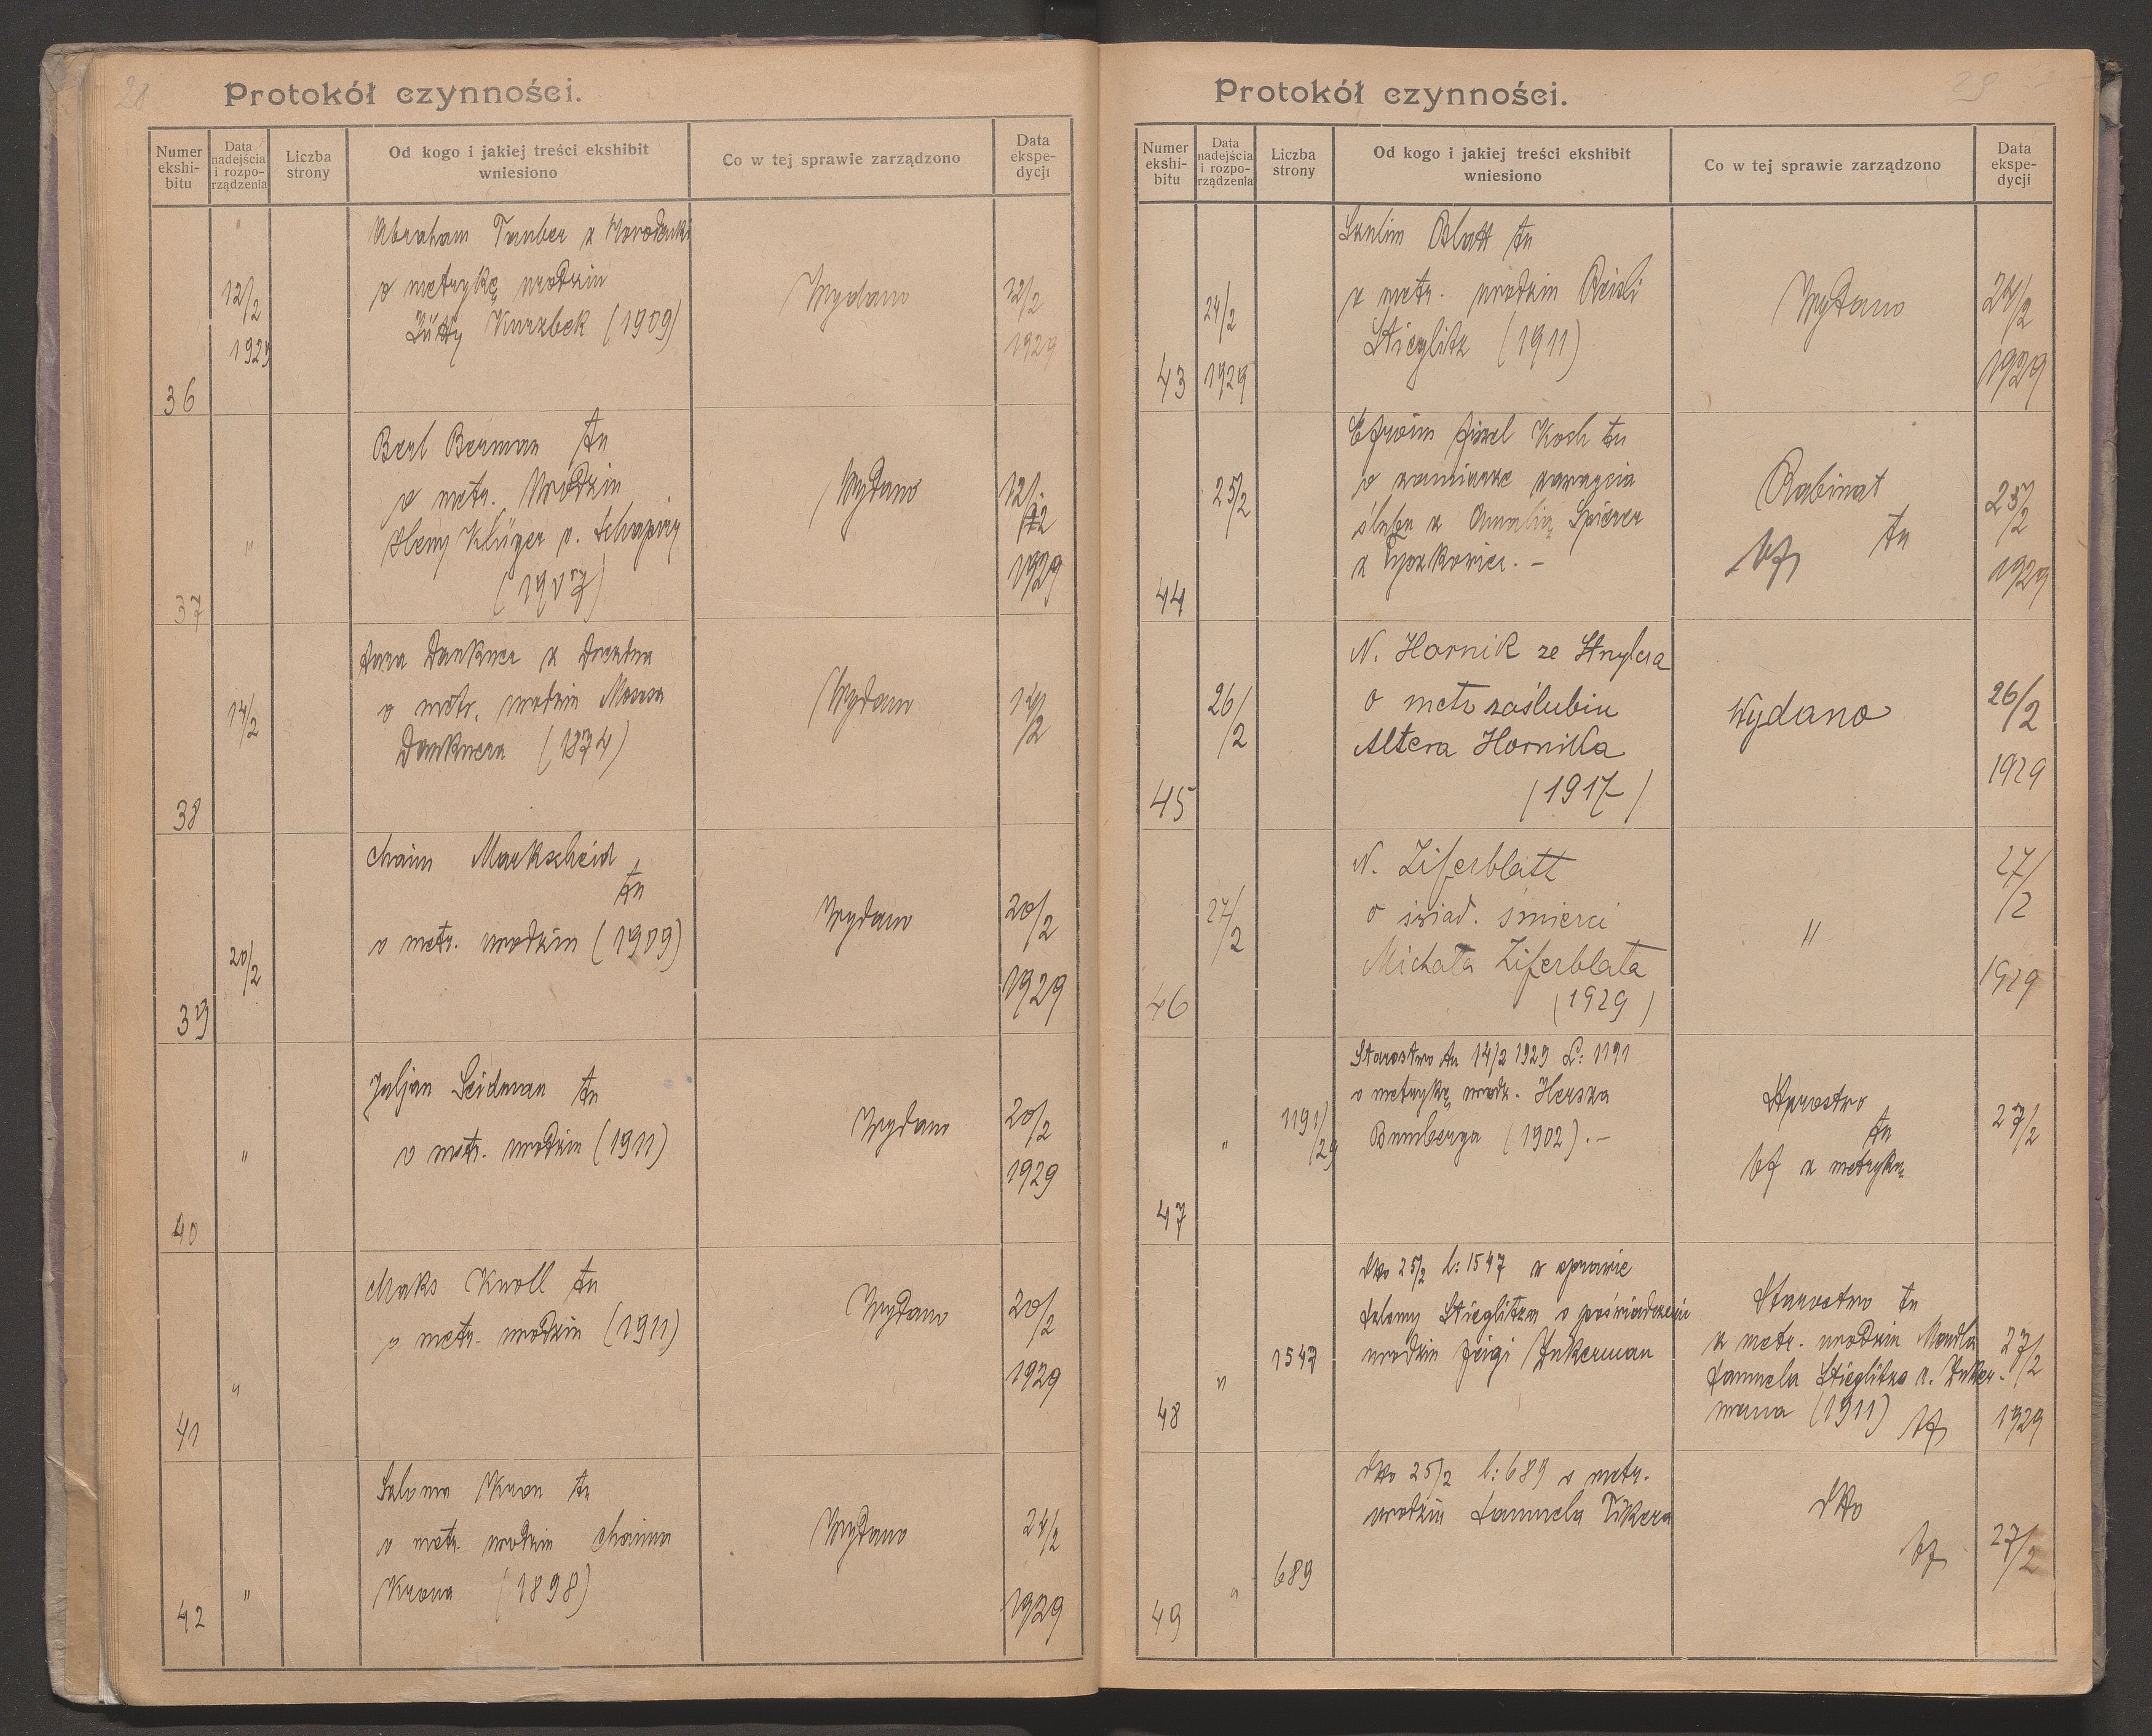 28
Protokół czynności.
Numer ekshi-bitu
Data nadejścia i rozpo-rządzenia
Liczba strony
Od kogo i jakiej treści ekshibit wniesiono
Co w tej sprawie zarządzono
Data ekspe-dycji
36
12/2
1929
Abraham Tauber z Horodenki
o metrykę urodzin
Jütty Kurzbek (1909)
Wydano
12/2
1929
37
"
Berl Berman tu
o metr. urodzin
Klüger v. Schapiry
Wydano
12/2
1929
38
14/2
Sara Dankner z Drezdna
o metr. urodzin Mosesa
Danknera (1874)
Wydano
14/2
39
20/2
Chaim Markscheid
tu
o metr. urodzin (1909)
Wydano
20/2
1929
40
"
Juljan Seidman tu
o metr. urodzin (1911)
Wydano
20/2
1929
41
"
Maks Knoll tu
o metr. urodzin (1911)
Wydano
20/2
1929
42
"
Salomo Kron tu
o metr. urodzin Chaima
Krona (1898)
Wydano
24/2
1929
29
Protokół czynności.
Numer ekshi-bitu
Data nadejścia i rozpo-rządzenia
Liczba strony
Od kogo i jakiej treści ekshibit wniesiono
Co w tej sprawie zarządzono
Data ekspe-dycji
43
24/2
1929
Szulim Blatt tu
o metr. urodzin Reisli
Stieglitz (1911)
Wydano
24/2
1929
44
25/2
Efroim Kosh tu
o zamiarze zawarcia
ślubu z Amalią Spierer
z
Rabinat
tu
25/2
1929
45
26/2
N. Hornik ze Stryja
o metr zaślubin
Altera Hornika
(1917)
Wydano
26/2
1929
46
27/2
N. Ziferblatt
o świad. śmierci
Michała Ziferblata
(1929)
"
27/2
1929
47
"
1191/29
Starostwo tu 14/2 1929 L: 1191
o metrykę urodz. Hersza
Bamberga (1902). -
Starostwo
tu
z metryką
27/2
48
"
1547
dtto 25/2 l: 1547 w sprawie
Salamy Stieglitza o poświadczenie
urodzin Feigi Zukerman
Starostwo tu
z metr. urodzin Mendla
Samuela Stieglitza v. Zuker-
mana (1911)
27/2
1929
49
"
689
dtto 25/2 l: 689 o metr.
urodzin Samuela Tikera
dtto
27/2